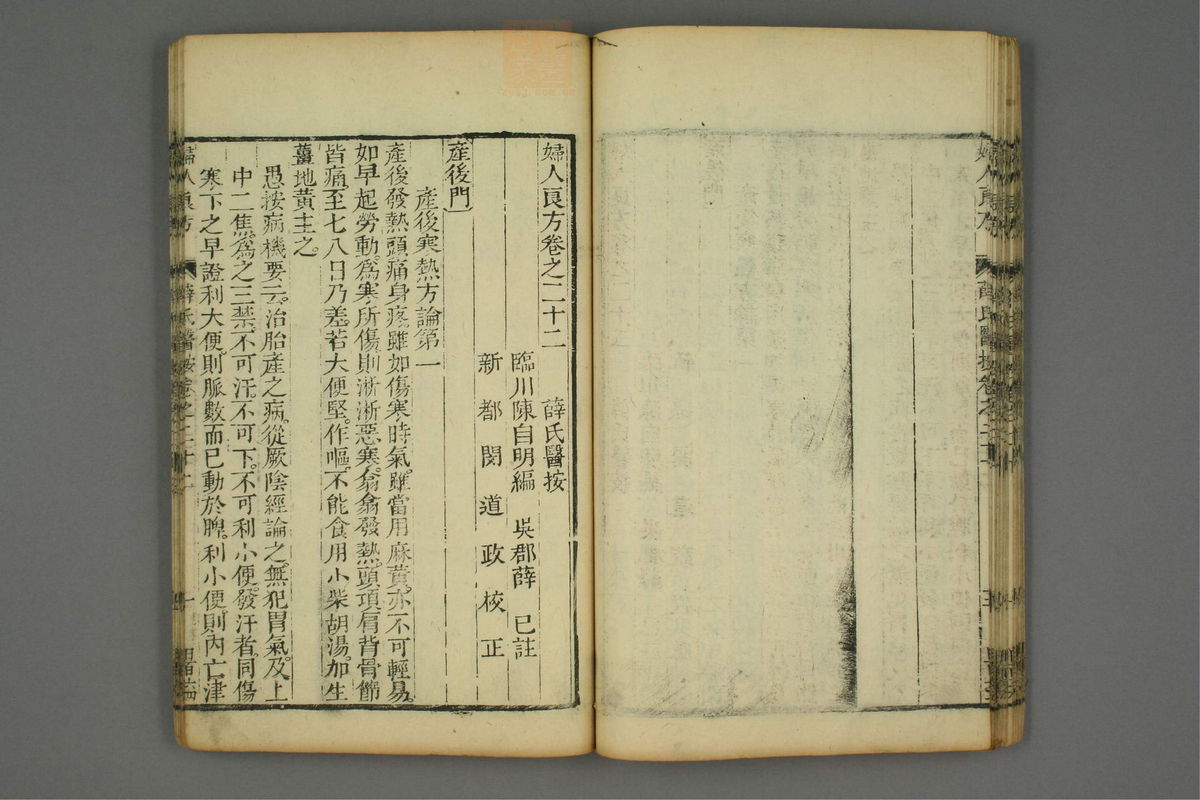 婦人良方卷之二十二　薛氏醫按
臨川陳自明編　吳郡薛　已註
新都閔道政校正
產後門
產後寒熱方論第一
產後發熱頭痛身疼。雖如傷寒時氣。雖當用麻黃。亦不可輕易。
如早起勞動。為寒所傷。則淅淅惡寒。翕翕發熱。頭項肩背骨節
皆痛。至七八日乃差。若大便堅。作嘔。不能食。用小柴胡湯。加生
薑地黃主之。
愚按病機要云。治胎產之病。從厥陰經論之。無犯胃氣。及上
中二焦。為之三禁。不可汗。不可下。不可利小便。發汗者。同傷
寒下之早證。利大便。則脈數而已動於脾。利小便。則內亡津
婦人良方　薛氏醫按卷之二十二　一
婦人良方　薛氏醫按卷之二十